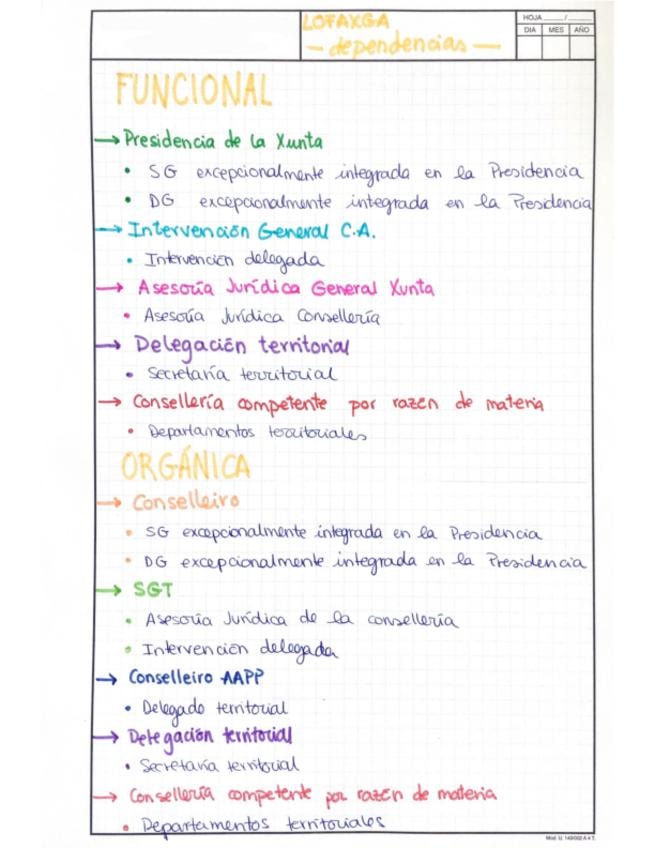 LOFAXGA
— dependencias —
HOJA ______ / ______
DIA MES AÑO
FUNCIONAL
→ Presidencia de la Xunta
• SG excepcionalmente integrada en la Presidencia
• DG excepcionalmente integrada en la Presidencia
→ Intervención General C.A.
• Intervención delegada
→ Asesoría Jurídica General Xunta
• Asesoría Jurídica Consellería
→ Delegación territorial
• Secretaría territorial
→ Consellería competente por razón de materia
• Departamentos territoriales
ORGÁNICA
→ Conselleiro
• SG excepcionalmente integrada en la Presidencia
• DG excepcionalmente integrada en la Presidencia
→ SGT
• Asesoría Jurídica de la consellería
• Intervención delegada
→ Conselleiro AAPP
• Delegado territorial
→ Delegación territorial
• Secretaría territorial
→ Consellería competente por razón de materia
• Departamentos territoriales